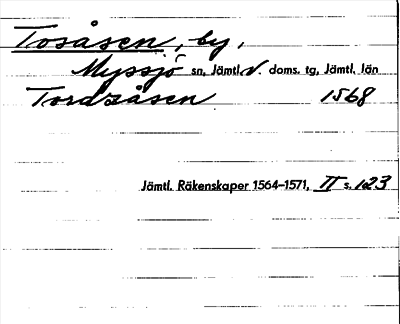 Tosåsen, by,
Myssjö sn, Jämtl. V. doms. tg, Jämtl. län
Tordzåsen 1568
Jämtl. Räkenskaper 1564-1571, II s. 123